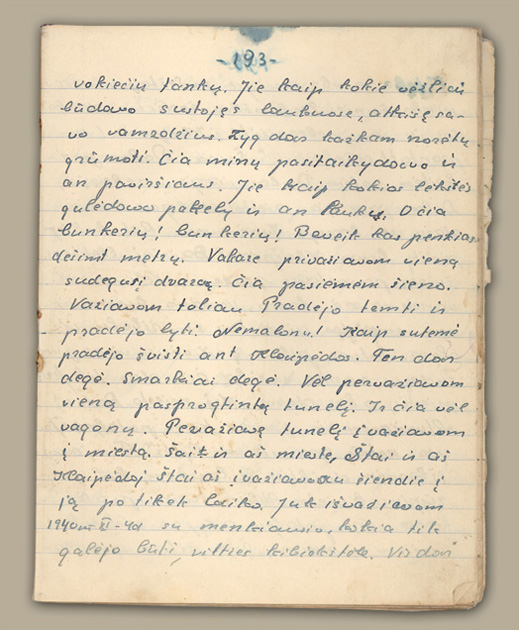 -193-
vokiečių tankų. Jie kaip kokie vėžliai
būdavo sustoję laukuose, atkišę sa-
vo vamzdžius. Lyg dar kažkam norėtų
grūmoti. Čia minų pasitaikydavo ir
an paviršiaus. Jie kaip kokios lėkštės
gulėdavo pakely ir an laukų. O čia
bunkerių! bunkerių! Beveik kas penkias
dešimt metrų. Vakare privažiavom vieną
sudegusį dvarą. Čia pasiėmėm šieno.
Važiavom toliau Pradėjo temti ir
pradėjo lyti. Nemalonu! Kaip sutemė
pradėjo švisti ant Klaipėdos. Ten dar
degė. Smarkiai degė. Vėl pervažiavom
vieną pasprogtintą tunelį. Ir čia vėl
vagonų. Pervažiavę tunelį įvažiavom
į miestą. Šait ir aš mieste, Štai ir aš
Klaipėdoj Štai aš įvažiavau šiendie į
ją po tikek laiko. Juk išvažiavom
194 su menkiausia, kokia tik
galėjo būti, vilties kibirkštėle. Vis dar